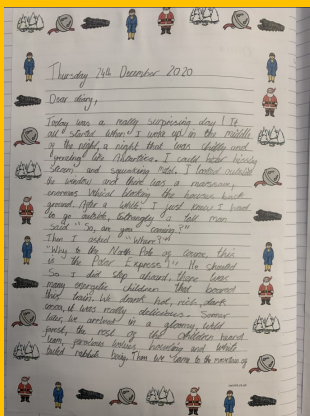 Thursday 24th December 2020
Dear diary,
Today was a really surprising day! It
all started when I woke up in the middle
of the night, a night that was chilly and
like Antarctica. I could hear hissing
steam and squeaking metal. I looked outside
the window and there was a massive,
enormous vehicle blocking the houses back
ground. After a while I just knew I had
to go outside, strangely a tall man
said "So, are you coming?"
Then I asked "Where?"
"Why to the North Pole of course, this
is the Polar Express!" He shouted
So I did step aboard, there were
many energetic children that boared
this train. We drank hot, rich, dark
cocoa, it was really delicious. Sooner
later, we arrived in a gloomy, wild
forest, the rest of the children heard
lean, wolves howling and white
tailed rabbits Then we came to the mountain of